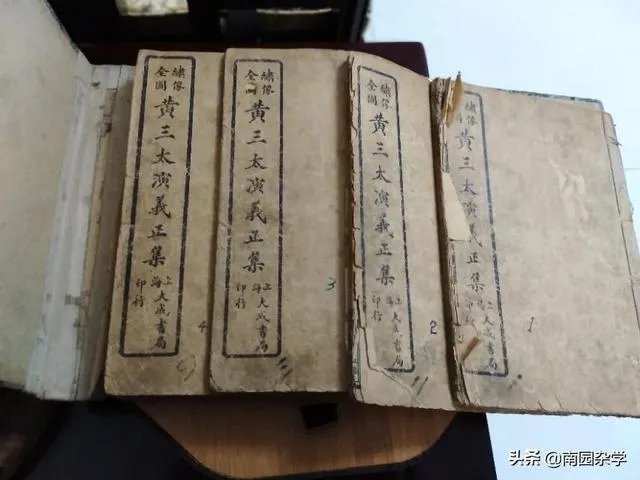 繡像
黃三太演義正集
上海大成書局
1
繡像
全圖
黃三太演義正集
上海大成書局
印行
2
二
繡像
全圖
黃三太演義正集
上海大成書局
印行
3
三
繡像
全圖
黃三太演義正集
上海大成書局
印行
4
头条 @南园杂学